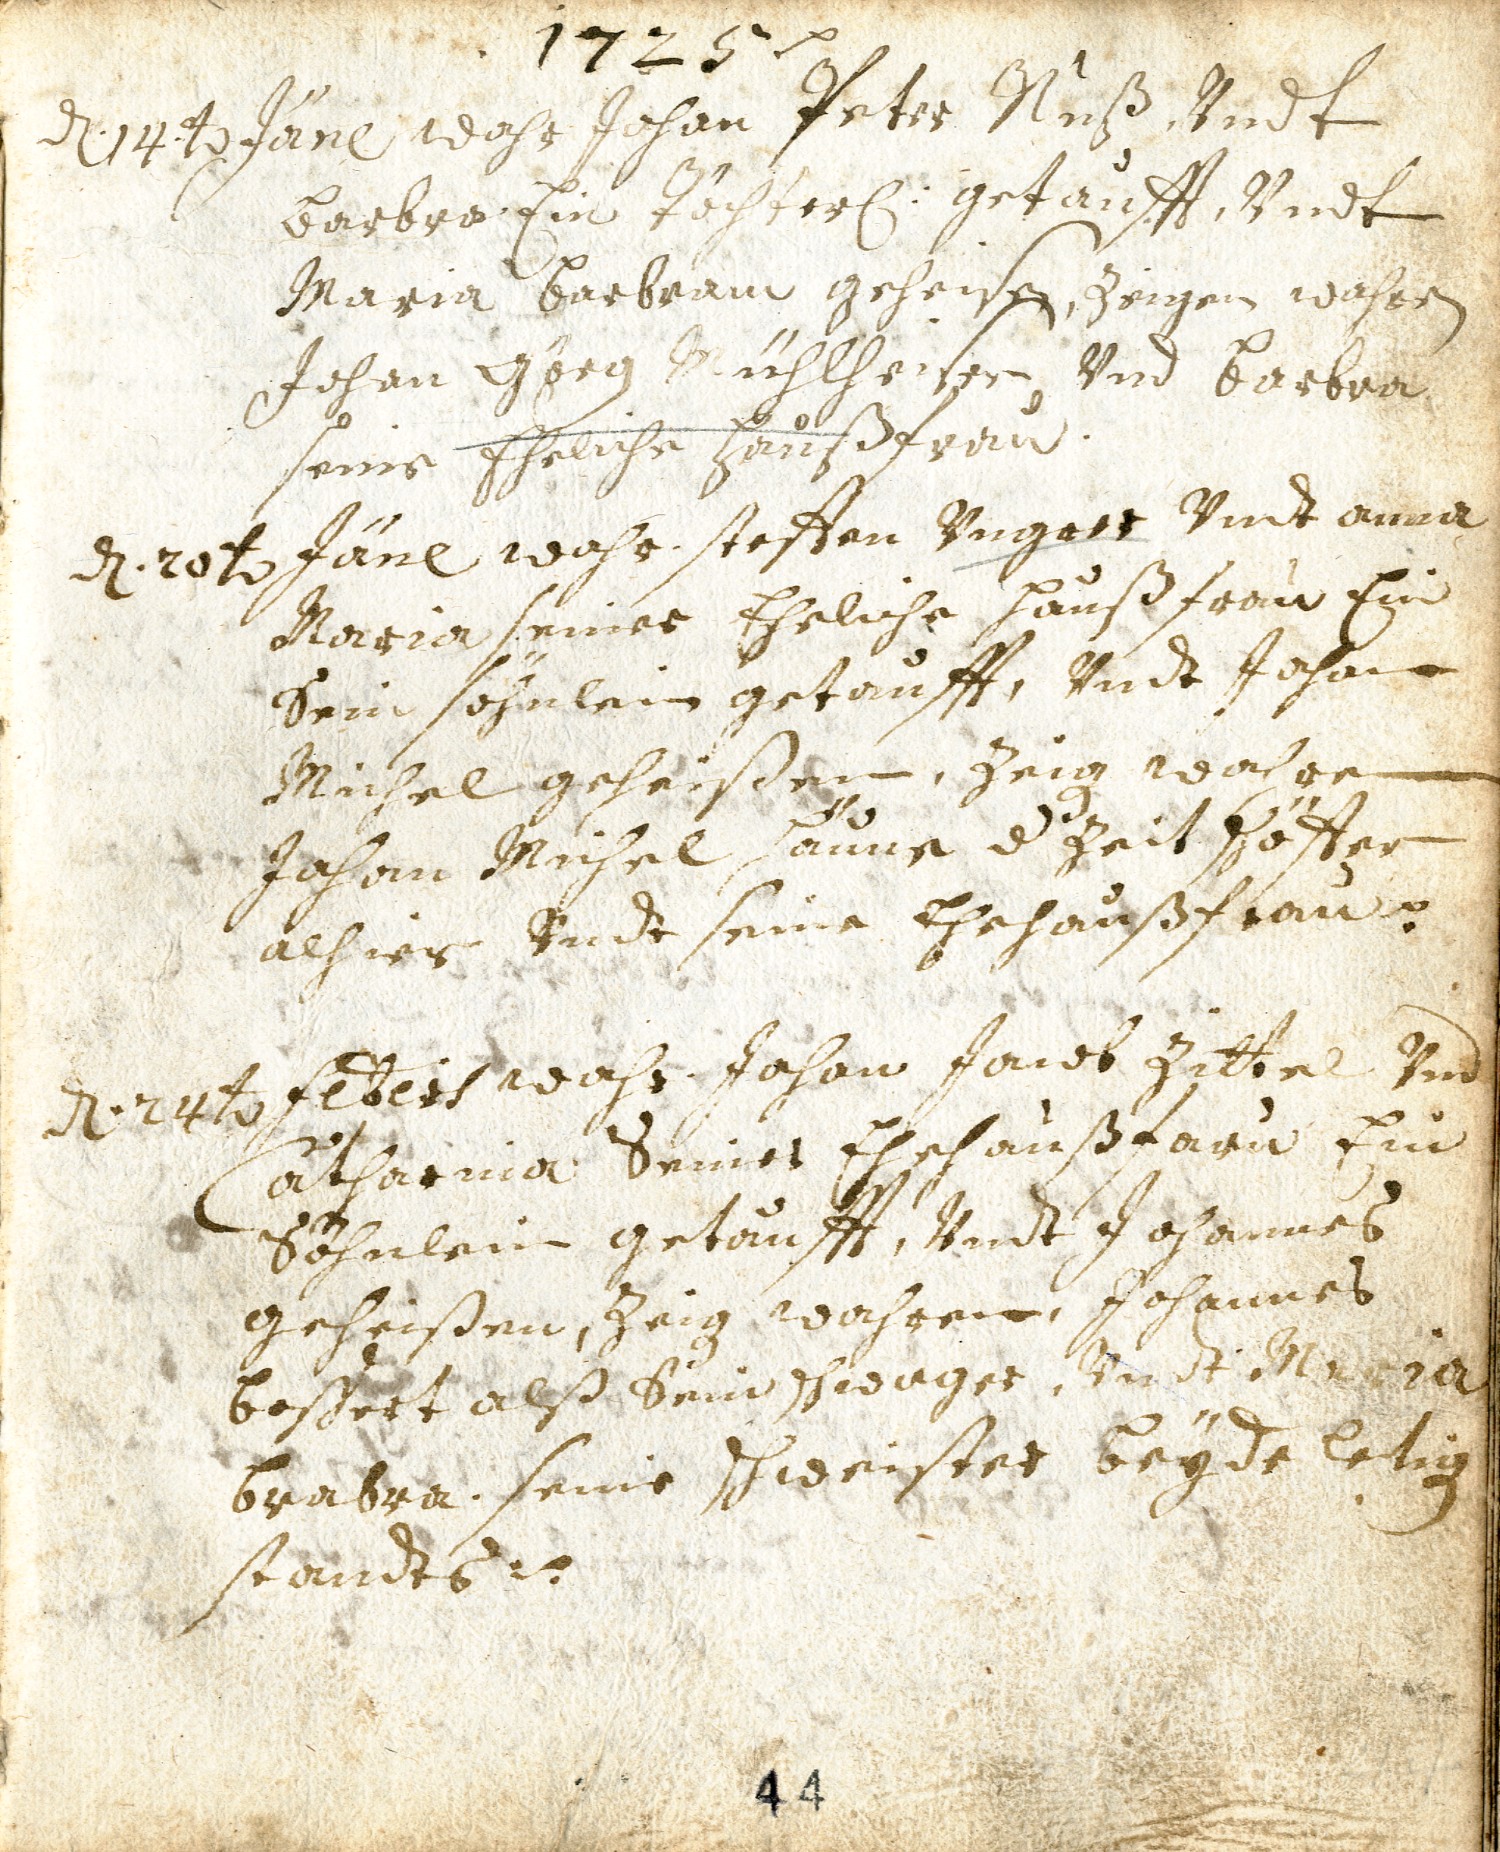 1725
d. 14t Jäne wahr Johan Peter Nuß Vndt
barbra Ein Töchterl: getaufft, Vndt
Maria barbram geheisen, Zeigen wahren
Johan Görg Mühlheiser Vnd barbra
seine Eheliche haußfrau.
d. 20t Jäne wahr steffen Vngerer Vndt anna
Maria seiner Eheliche haußfrau Ein
Sein söhnlein getaufft, Vndt Johan
Michel geheißen, Zeig wahren
Johan Michel d Zeit
alhier Vndt seine Ehehaußfrau
d. 24t wahr Johan Jacob Zittel Vnd
Catharina Seiner Ehehaußfaru Ein
Söhnlein getaufft, Vndt Johannes
geheißen, Zeig wahren, Johannes
bessert alß Sein schwager, Vndt Maria
brabra seine schweister beÿde letig
standts
44